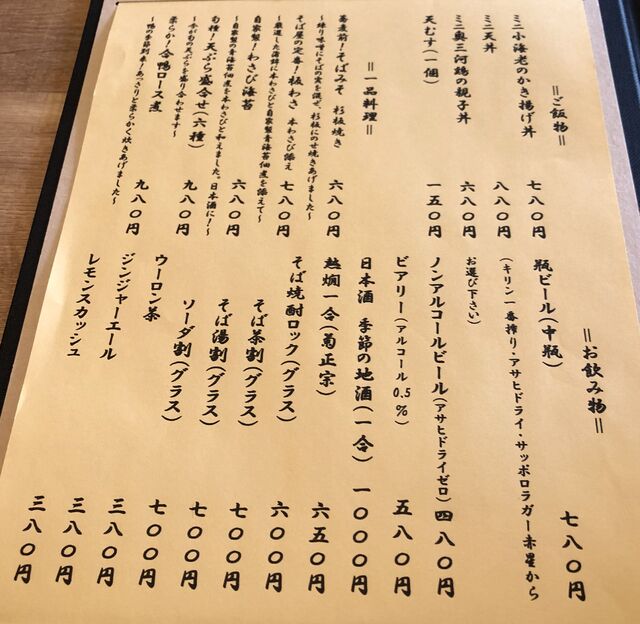 =ご飯物=
ミニ小海老のかき揚げ丼 七八〇円
ミニ天丼 八八〇円
ミニ奥三河鶏の親子丼 六八〇円
天むす(一個) 一五〇円
=一品料理=
蕎麦前!そばみそ 杉板焼き 六八〇円
~練り味噌にそばの実を混ぜ、杉板にのせ焼きあげました~
そば屋の定番!板わさ 本わさび添え 七八〇円
~厳選した蒲鉾に本わさびと自家製青海苔佃煮を添えて~
自家製!わさび海苔 六八〇円
~自家製の青海苔佃煮を本わさびと和えました。日本酒に!~
旬種!天ぷら盛合せ(六種) 九八〇円
~今が旬の天ぷらを盛り合わせます~
柔らか!合鴨ロース煮 九八〇円
~鴨の季節到来!あっさりと柔らかく炊きあげました~
=お飲み物=
瓶ビール(中瓶) 七八〇円
(キリン一番搾り・アサヒドライ・サッポロラガー赤星から
お選び下さい)
ノンアルコールビール(アサヒドライゼロ) 四八〇円
ビアリー(アルコール0.5%) 五八〇円
日本酒 季節の地酒(一合) 一〇〇〇円
熱燗一合(菊正宗) 六五〇円
そば焼酎ロック(グラス) 六〇〇円
そば茶割(グラス) 七〇〇円
そば湯割(グラス) 七〇〇円
ソーダ割(グラス) 七〇〇円
ウーロン茶 三八〇円
ジンジャーエール 三八〇円
レモンスカッシュ 三八〇円